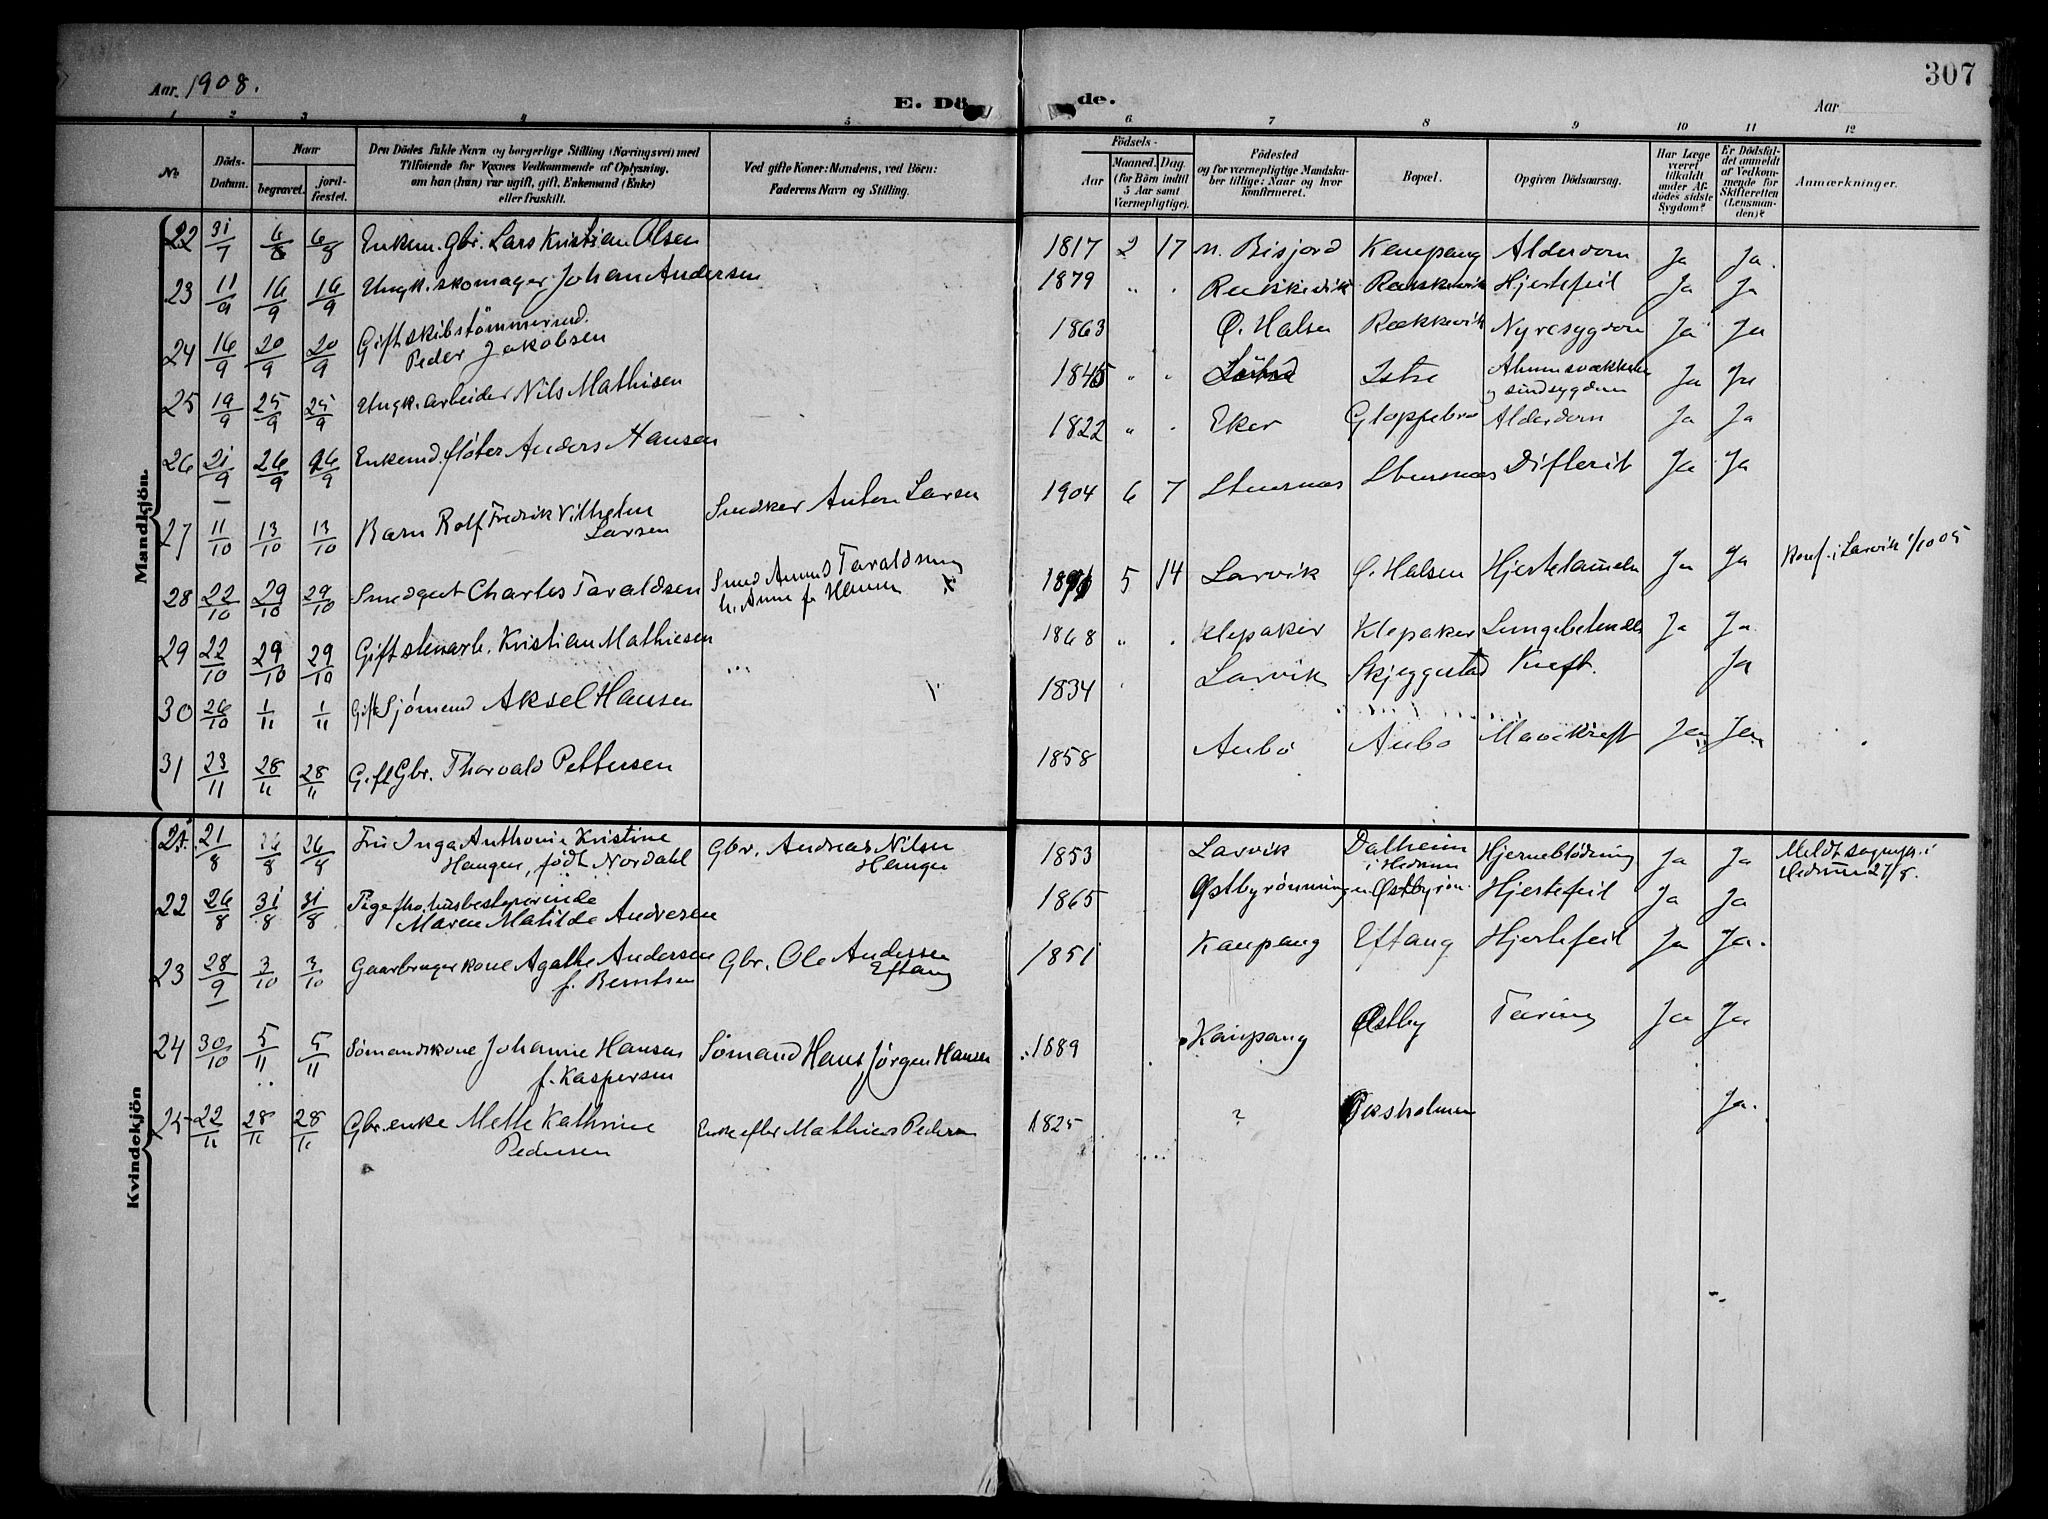 307
Aar. 1908.
E. Dö de.
Aar
1 2 3 4 5 6 7 8 9 10 11 12
No.
Döds-Datum.
Naar
begravet.
jord-fæstet.
Den Dödes fulde Navn og borgerlige Stilling (Næringsvei) med
Tilföiende for Voxnes Vedkommende af Oplysning,
om han (hun) var ugift, gift, Enkemand (Enke)
eller fraskilt.
Ved gifte Koner: Mandens, ved Börn:
Faderens Navn og Stilling.
Födsels-
Aar
Maaned. Dag.
(for Börn indtil
5 Aar samt
Værnepligtige).
Födested
og for værnepligtige Mandska-
ber tillige: Naar og hvor
konfirmeret.
Bopæl.
Opgiven Dödsaarsag.
Har Læge
været
tilkaldt
under Af-
dödes sidste
Sygdom?
Er Dödsfal-
det anmeldt
af Vedkom-
mende for
Skifteretten
(Lensman-
den)?
Anmærkninger.
Mandkjön
22 31/7 6/8 6/8 Enkem. gbr. Lars Kristian Olsen 1817 2 17 n. Bisjord Kaupang Alderdom Ja Ja.
23 11/9 16/9 16/9 Ungk. skomager Johan Andersen 1879 " . Rækkevik Rækkevik Hjertefeil Ja Ja
24 16/9 20/9 20/9 Gift skibstømmermd.
Peder Jakobsen 1863 Ø. Halsen Rækkevik Nyresygdom Ja Ja
25 19/9 25/9 25/9 Ungk. arbeider Nils Mathisen 1845 " . Istre Almensvækkelse
og sindsygdom Ja Ja
26 21/9 26/9 26/9 Enkemd. fløter Anders Hansen 1822 " . Eker Gloppebro Alderdom Ja Ja
27 11/10 13/10 13/10 Barn Rolf Fredrik Vilhelm
Larsen Snedker Anton Larsen 1904 6 7 Stuersnæs Stuersnæs Difterit Ja Ja
28 22/10 29/10 29/10 Smedgut Charles Taraldsen Smed Anund Taraldsen
h. Anne f. Hansen 1891 5 14 Larvik Ø. Halsen Hjertelamelse Ja Ja Konf. i Larvik 1/10 05
29 22/10 29/10 29/10 Gift stenarb. Kristian Mathiesen 1868 " . Klepaker Klepaker Lungebetendelse Ja Ja
30 26/10 1/11 1/11 Gift Sjømand Aksel Hansen 1834 Larvik Skjeggestad Kreft. Ja
31 23/11 28/11 28/11 Gift Gbr. Thorvald Pettersen 1858 Aubø Aubo Mavekreft Ja Ja
Kvindekjön
21. 21/8 26/8 26/8 Fru Inga Anthonie Kristine
Haugen, født Nordahl Gbr. Andreas Nilsen
Haugen 1853 Larvik Dalheim
i Hedrum Hjerneblødning Ja Ja Meldt sognepr. i
Hedrum 27/8.
22 26/8 31/8 31/8 Pige fhv. husbestyrerinde
Maren Matilde Andresen 1865 Østbyrønningen Østbyrøn. Hjertefeil Ja Ja
23 28/9 3/10 3/10 Gaarbruger kone Agathe Andersen
f. Berntsen Gbr. Ole Andersen
Eftang 1851 Kaupang Eftang Hjertefeil Ja Ja.
24 30/10 5/11 5/11 Sømandskone Johanne Hansen
f. Kaspersen Sømand Hans Jørgen Hansen 1889 Kaupang Østby Tæring Ja Ja
25 22/11 28/11 28/11 Gbr. enke Mette Kathrine
Pedersen Enke efter Mathias Pedersen 1825 ? Oksholmen Ja.